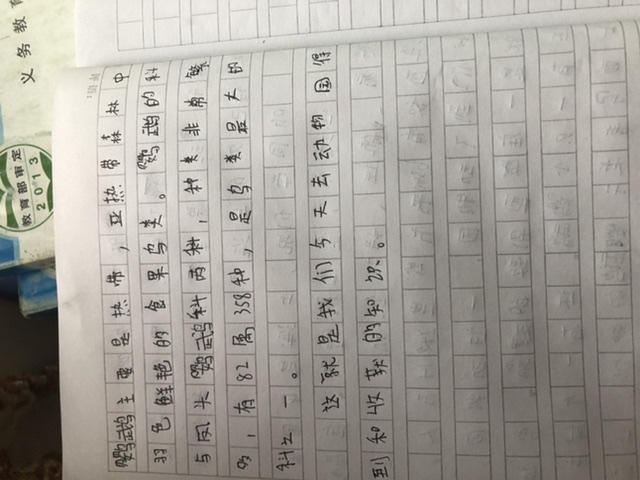 义务教育
教育部审定
2013
鹦鹉主要是热带，亚热带森林中
羽色鲜艳的食果鸟类。鹦鹉的科
与凤头鹦鹉科两科，种类非常繁
多，有82属358种，是鸟类最大的
科之一。
这就是我们今天去动物园得
到和收获的知识。